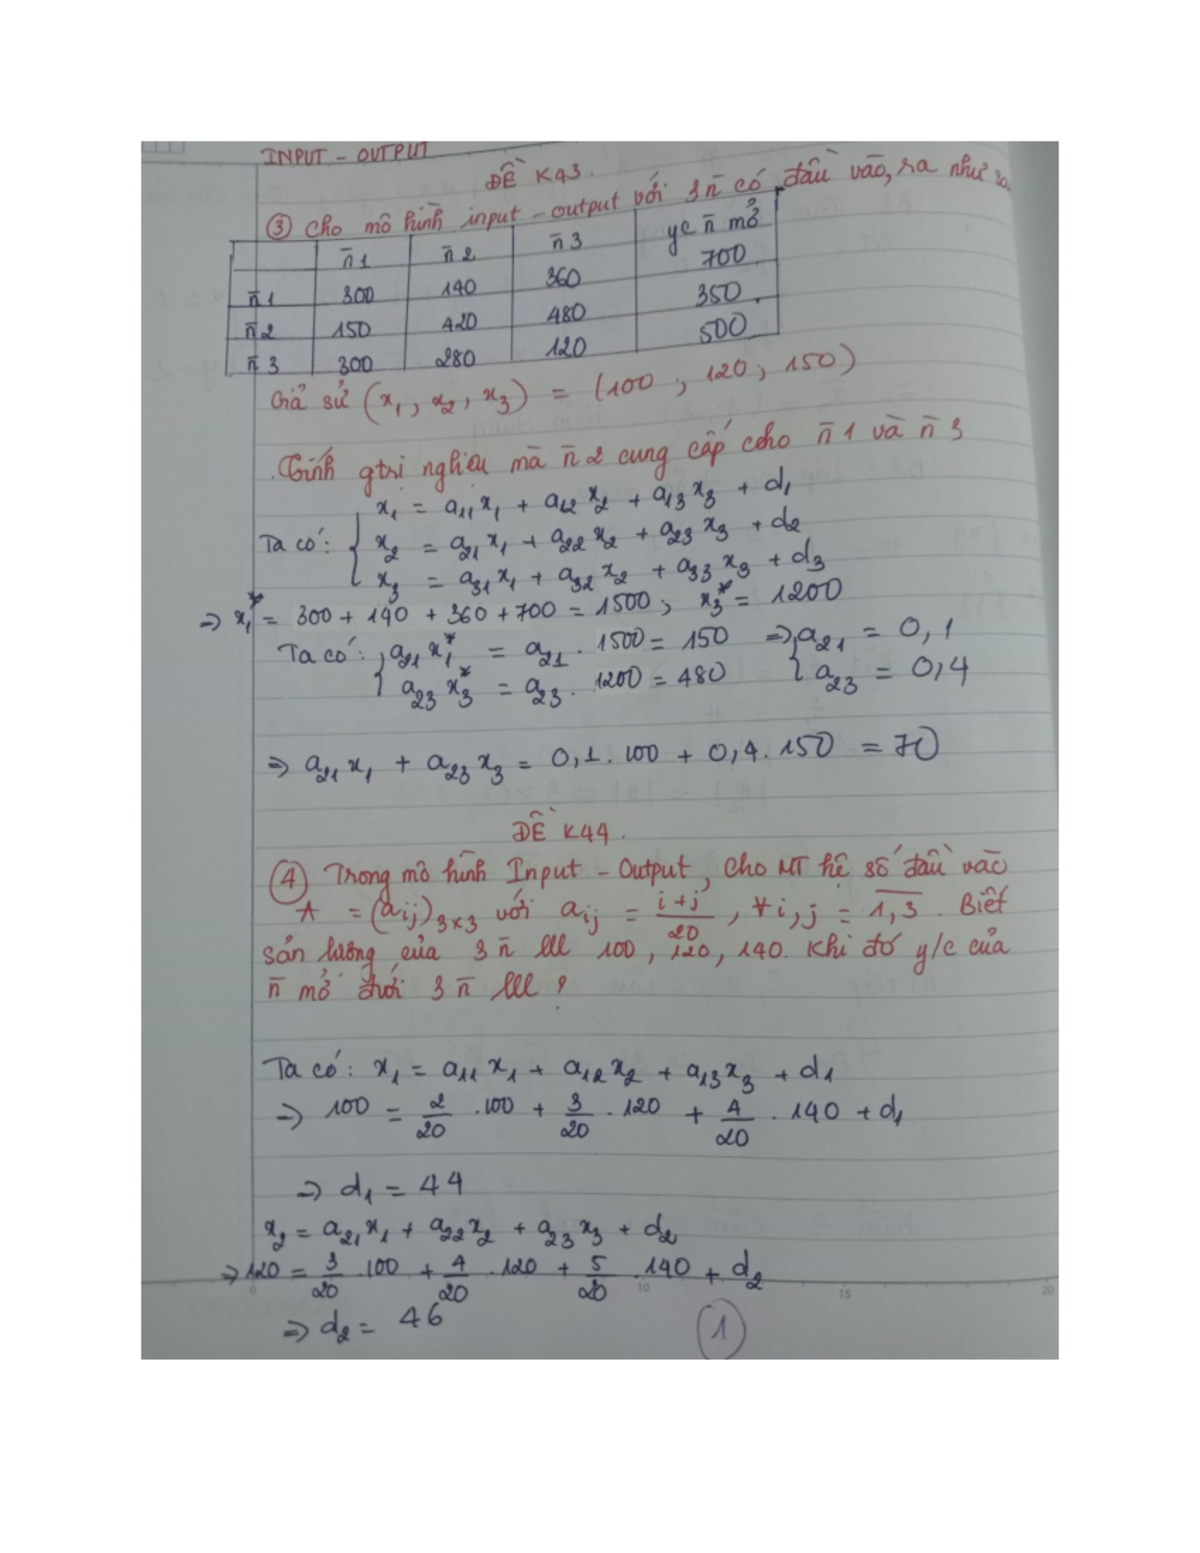 INPUT - OUTPUT
ĐỀ K43.
③ Cho mô hình input - output với 3 n̄ có đầu vào, ra như
n̄1 n̄2 n̄3 yc n̄ mở
n̄1 300 140 360 700
n̄2 150 420 480 350
n̄3 300 280 120 500
Giả sử (x₁, x₂, x₃) = (100; 120; 150)
Tính gtrị nglieu mà n̄2 cung cấp cho n̄1 và n̄3
x₁ = a₁₁x₁ + a₁₂x₂ + a₁₃x₃ + d₁
Ta có: { x₂ = a₂₁x₁ + a₂₂x₂ + a₂₃x₃ + d₂
x₃ = a₃₁x₁ + a₃₂x₂ + a₃₃x₃ + d₃
=> x₁* = 300 + 140 + 360 + 700 = 1500; x₃* = 1200
Ta có: { a₂₁x₁* = a₂₁ . 1500 = 150 => { a₂₁ = 0,1
a₂₃x₃* = a₂₃ . 1200 = 480 a₂₃ = 0,4
=> a₂₁x₁ + a₂₃x₃ = 0,1 . 100 + 0,4 . 150 = 70
ĐỀ K44.
④ Trong mô hình Input - Output, Cho MT hệ số đầu vào
A = (aij)₃ₓ₃ với aij = (i+j)/20, ∀i,j = 1,3. Biết
sản lượng của 3 n̄ lll 100, 120, 140. Khi đó y/c của
n̄ mở đối 3 n̄ lll ?
Ta có: x₁ = a₁₁x₁ + a₁₂x₂ + a₁₃x₃ + d₁
=> 100 = 2/20 . 100 + 3/20 . 120 + 4/20 . 140 + d₁
=> d₁ = 44
x₂ = a₂₁x₁ + a₂₂x₂ + a₂₃x₃ + d₂
=> 120 = 3/20 . 100 + 4/20 . 120 + 5/20 . 140 + d₂
0 10 15 20
=> d₂ = 46
1